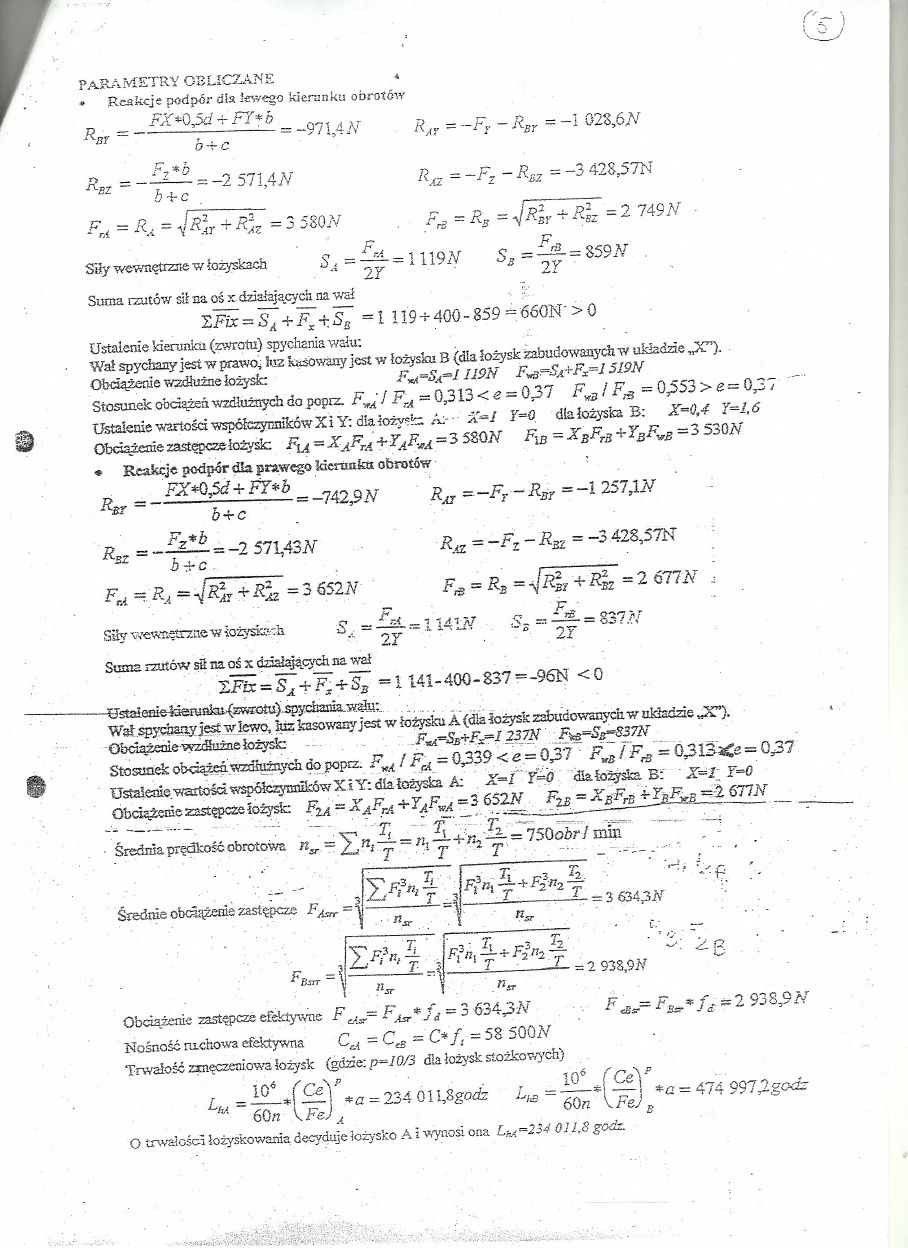 5
PARAMETRY OBLICZANE
• Reakcje podpór dla lewego kierunku obrotów
R_BY = − (FX*0,5d + FY*b)/(b+c) = −971,4N R_AY = −F_Y − R_BY = −1 028,6N
R_BZ = − (F_Z*b)/(b+c) = −2 571,4N R_AZ = −F_Z − R_BZ = −3 428,57N
F_rA = R_A = √(R²_AY + R²_AZ) = 3 580N F_rB = R_B = √(R²_BY + R²_BZ) = 2 749N
Siły wewnętrzne w łożyskach S_A = F_rA/2Y = 1 119N S_B = F_rB/2Y = 859N
Suma rzutów sił na oś x działających na wał
ΣFix = S_A + F_x + S_B = 1 119+400-859 = 660N > 0
Ustalenie kierunku (zwrotu) spychania wału:
Wał spychany jest w prawo, luz kasowany jest w łożysku B (dla łożysk zabudowanych w układzie „X”).
Obciążenie wzdłużne łożysk: F_wA=S_A=1 119N F_wB=S_A+F_x=1 519N
Stosunek obciążeń wzdłużnych do poprz. F_wA / F_rA = 0,313 < e = 0,37 F_wB / F_rB = 0,553 > e = 0,37
Ustalenie wartości współczynników X i Y: dla łożyska A: X=1 Y=0 dla łożyska B: X=0,4 Y=1,6
Obciążenie zastępcze łożysk: F_1A = X_A F_rA + Y_A F_wA = 3 580N F_1B = X_B F_rB + Y_B F_wB = 3 530N
• Reakcje podpór dla prawego kierunku obrotów
R_BY = − (FX*0,5d + FY*b)/(b+c) = −742,9N R_AY = −F_Y − R_BY = −1 257,1N
R_BZ = − (F_Z*b)/(b+c) = −2 571,43N R_AZ = −F_Z − R_BZ = −3 428,57N
F_rA = R_A = √(R²_AY + R²_AZ) = 3 652N F_rB = R_B = √(R²_BY + R²_BZ) = 2 677N
Siły wewnętrzne w łożyskach S_A = F_rA/2Y = 1 141N S_B = F_rB/2Y = 837N
Suma rzutów sił na oś x działających na wał
ΣFix = S_A + F_x + S_B = 1 141-400-837 = -96N < 0
Ustalenie kierunku (zwrotu) spychania wału:
Wał spychany jest w lewo, luz kasowany jest w łożysku A (dla łożysk zabudowanych w układzie „X”).
Obciążenie wzdłużne łożysk: F_wA=S_B+F_x=1 237N F_wB=S_B=837N
Stosunek obciążeń wzdłużnych do poprz. F_wA / F_rA = 0,339 < e = 0,37 F_wB / F_rB = 0,313 < e = 0,37
Ustalenie wartości współczynników X i Y: dla łożyska A: X=1 Y=0 dla łożyska B: X=1 Y=0
Obciążenie zastępcze łożysk: F_2A = X_A F_rA + Y_A F_wA = 3 652N F_2B = X_B F_rB + Y_B F_wB = 2 677N
Średnia prędkość obrotowa n_sr = Σ n_i T_i/T = n_1 T_1/T + n_2 T_2/T = 750obr / min
Średnie obciążenie zastępcze F_Asrr = ∛((Σ F_i³ n_i T_i/T)/n_sr) = ∛((F_1³ n_1 T_1/T + F_2³ n_2 T_2/T)/n_sr) = 3 634,3N
F_Bsrr = ∛((Σ F_i³ n_i T_i/T)/n_sr) = ∛((F_1³ n_1 T_1/T + F_2³ n_2 T_2/T)/n_sr) = 2 938,9N
Obciążenie zastępcze efektywne F_eAsr = F_Asr * f_d = 3 634,3N F_eBsr = F_Bsr * f_d = 2 938,9N
Nośność ruchowa efektywna C_eA = C_eB = C* f_t = 58 500N
Trwałość zmęczeniowa łożysk (gdzie: p=10/3 dla łożysk stożkowych)
L_hA = 10⁶/60n * (Ce/Fe)^p_A *a = 234 011,8godz L_hB = 10⁶/60n * (Ce/Fe)^p_B *a = 474 997,2godz
O trwałości łożyskowania decyduje łożysko A i wynosi ona L_hA=234 011,8 godz.